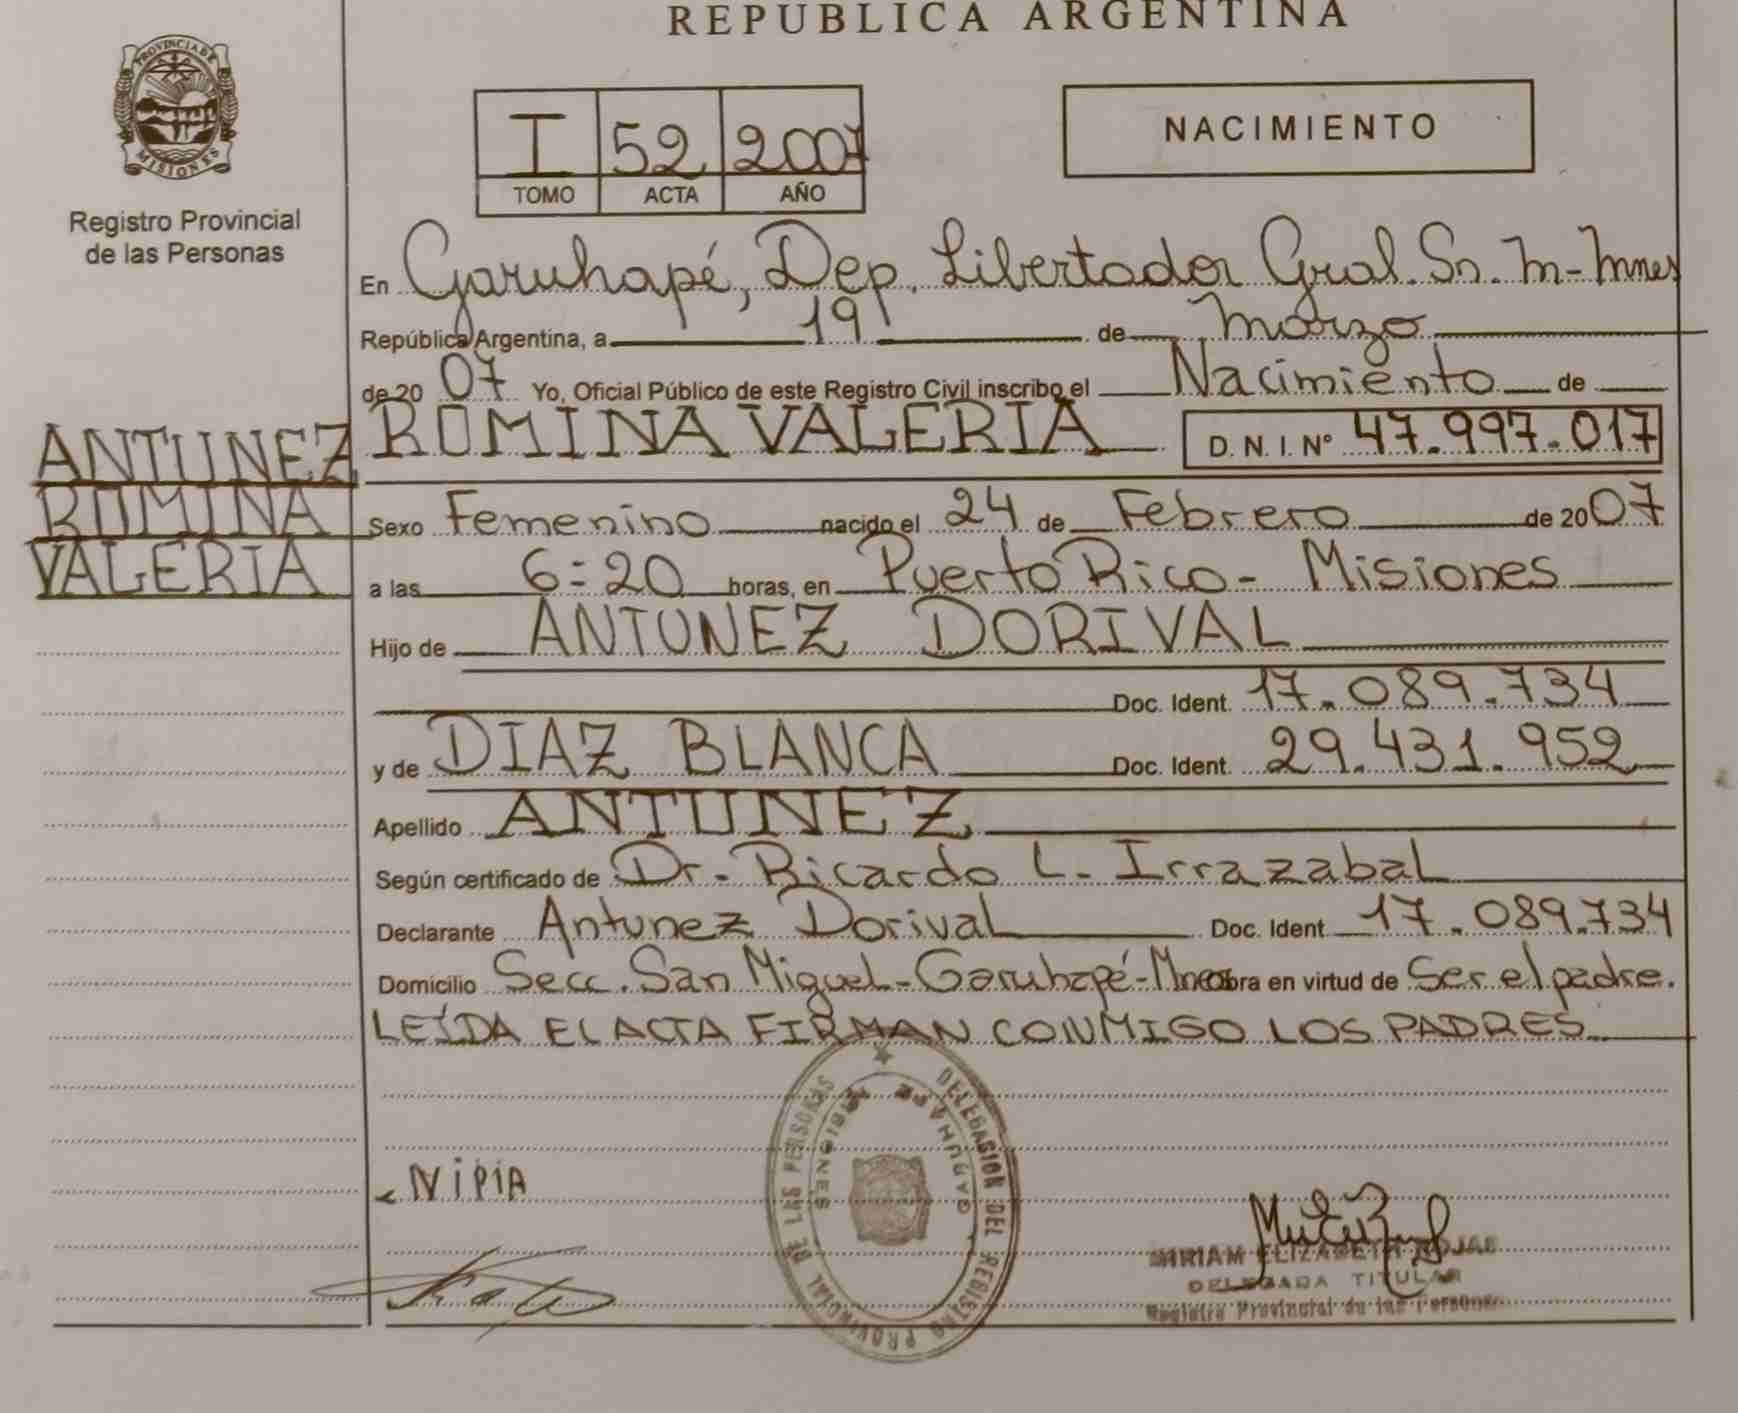 REPUBLICA ARGENTINA
PROVINCIA DE
MISIONES
Registro Provincial
de las Personas
I 52 2007
TOMO ACTA AÑO
NACIMIENTO
En Garuhapé, Dep. Libertador Gral. Sn. M-Mnes
República Argentina, a 19 de Marzo
de 2007 Yo, Oficial Público de este Registro Civil inscribo el Nacimiento de
ROMINA VALERIA D. N. I. Nº 47.997.017
ANTUNEZ
ROMINA
VALERIA
Sexo Femenino nacido el 24 de Febrero de 2007
a las 6:20 horas, en Puerto Rico- Misiones
Hijo de ANTUNEZ DORIVAL
Doc. Ident. 17.089.734
y de DIAZ BLANCA Doc. Ident. 29.431.952
Apellido ANTUNEZ
Según certificado de Dr. Ricardo L. Irrazabal
Declarante Antunez Dorival Doc. Ident 17.089.734
Domicilio Secc. San Miguel-Garuhapé-Mnes obra en virtud de Ser el padre.
LEÍDA EL ACTA FIRMAN CONMIGO LOS PADRES
DELEGASION DEL REGISTRO PROVINCIAL DE LAS PERSONAS
GARUHAPE MISIONES
MIRIAM ELIZABETH ROJAS
DELEGADA TITULAR
Registro Provincial de las Personas